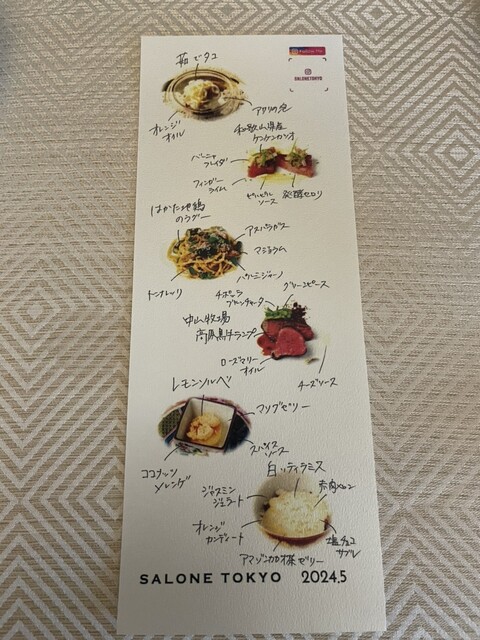 SALONETOKYO
茹でダコ
オレンジ
オイル
アサリの泡
和歌山県産
ケンケンカツオ
バーニャ
フレイダ
フィンガー
ライム
ピルピル
ソース
発酵セロリ
はかた地鶏
のラグー
アスパラガス
マジョラム
パルミジャーノ
トンナレッリ
チポッラ
ブルッチャータ
グリーンピース
中山牧場
高原黒牛ランプ
ローズマリー
オイル
チーズソース
レモンソルベ
マンゴゼリー
スパイス
ソース
ココナッツ
メレンゲ
白いティラミス
ジャスミン
ジェラート
赤肉メロン
オレンジ
カンディート
塩チョコ
サブレ
アマゾンカカオ茶ゼリー
SALONE TOKYO 2024.5